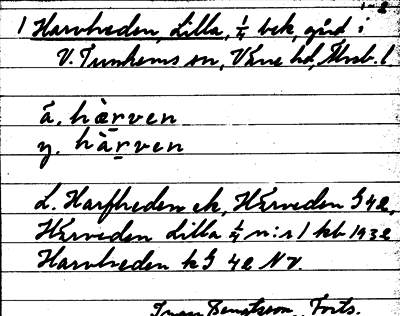 1-2
1 Harvheden, Lilla, 1/4 bek, gård i
V. Tunhems sn, Väne hd, Älvsb. l
ä. hàrven
y. hàrven
L. Harfheden ek, Härveden G 42,
Härveden Lilla 1/4 n:r 1 kb 1932
Harvheden k G 42 NV.
Ivar Bengtsson Forts.